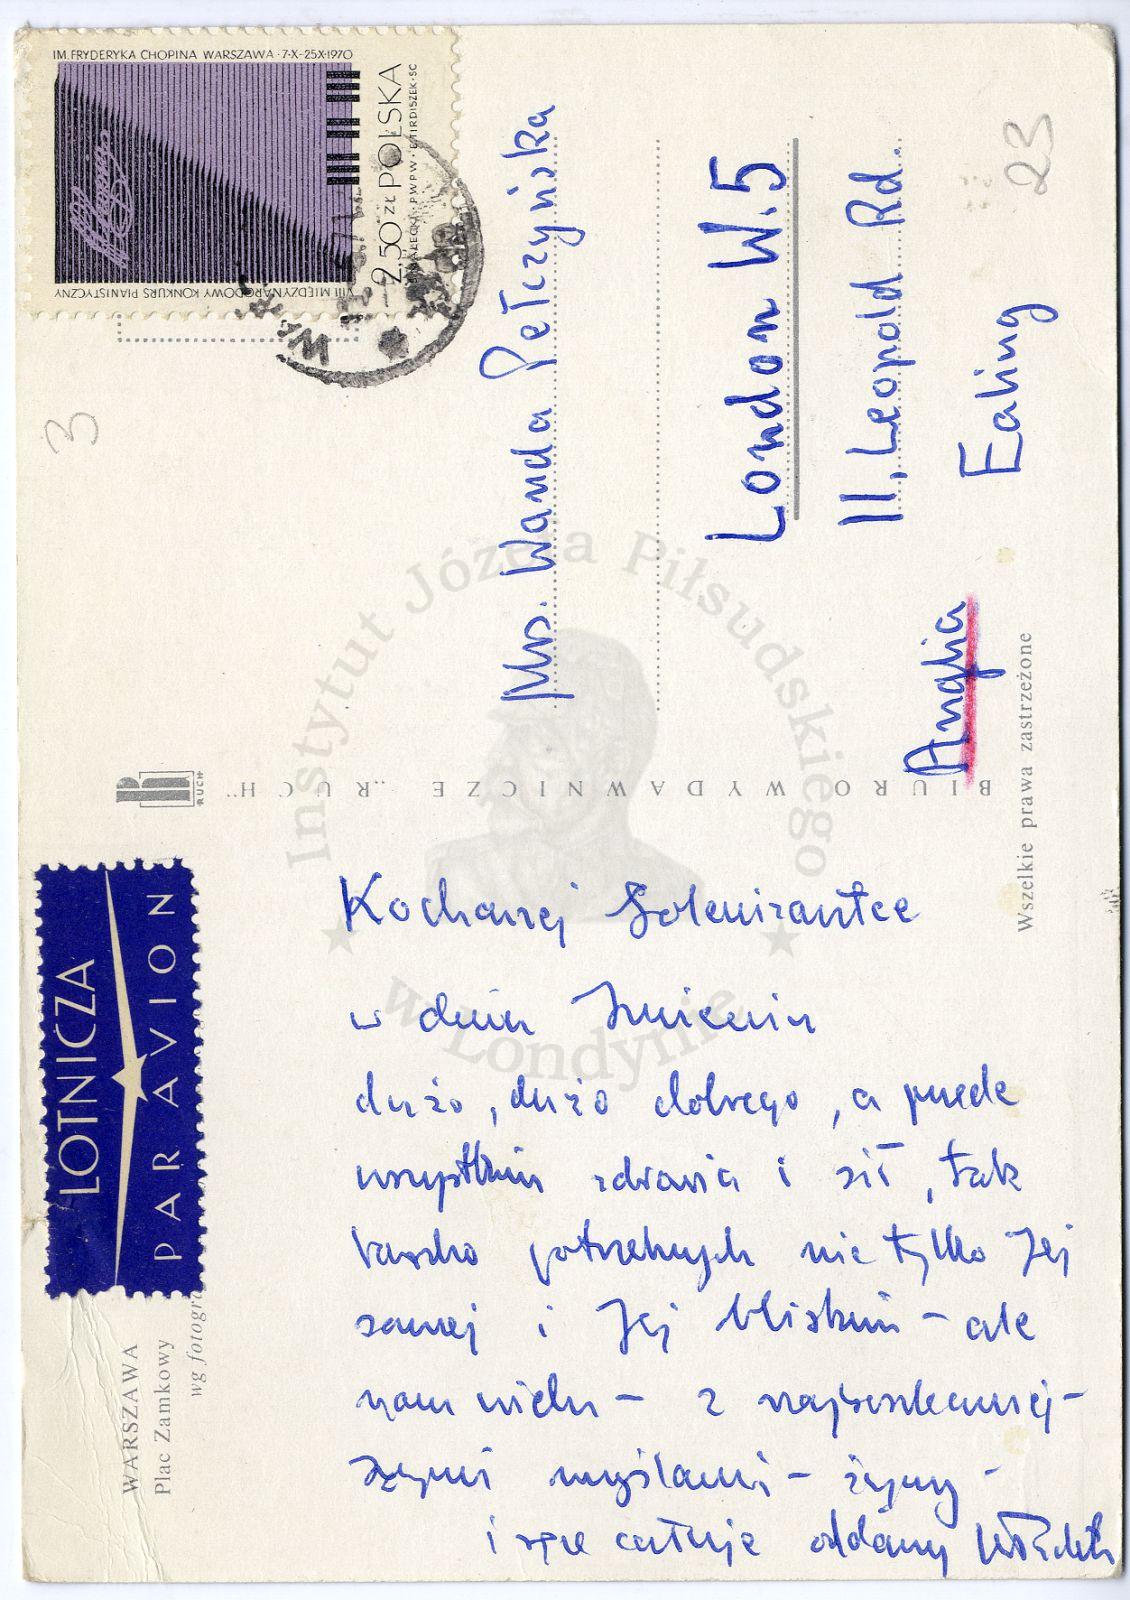 IM. FRYDERYKA CHOPINA WARSZAWA · 7-X-25X·1970
VIII MIĘDZYNARODOWY KONKURS PIANISTYCZNY
2,50 ZŁ POLSKA
Chopin
3
23
LOTNICZA
PAR AVION
RUCH
WARSZAWA
Plac Zamkowy
wg fotogra
BIURO WYDAWNICZE „RUCH"
Wszelkie prawa zastrzeżone
Instytut Józefa Piłsudskiego
w Londynie
Mrs. Wanda Pełczyńska
London W.5
11, Leopold Rd.
Ealing
Anglia
Kochanej Solenizantce
w dniu Imienin
dużo, dużo dobrego, a przede
wszystkim zdrowia i sił, tak
bardzo potrzebnych nie tylko Jej
samej i Jej bliskim – ale
nam wielu – z najserdeczniej-
szymi myślami –
i ręce całuję oddany